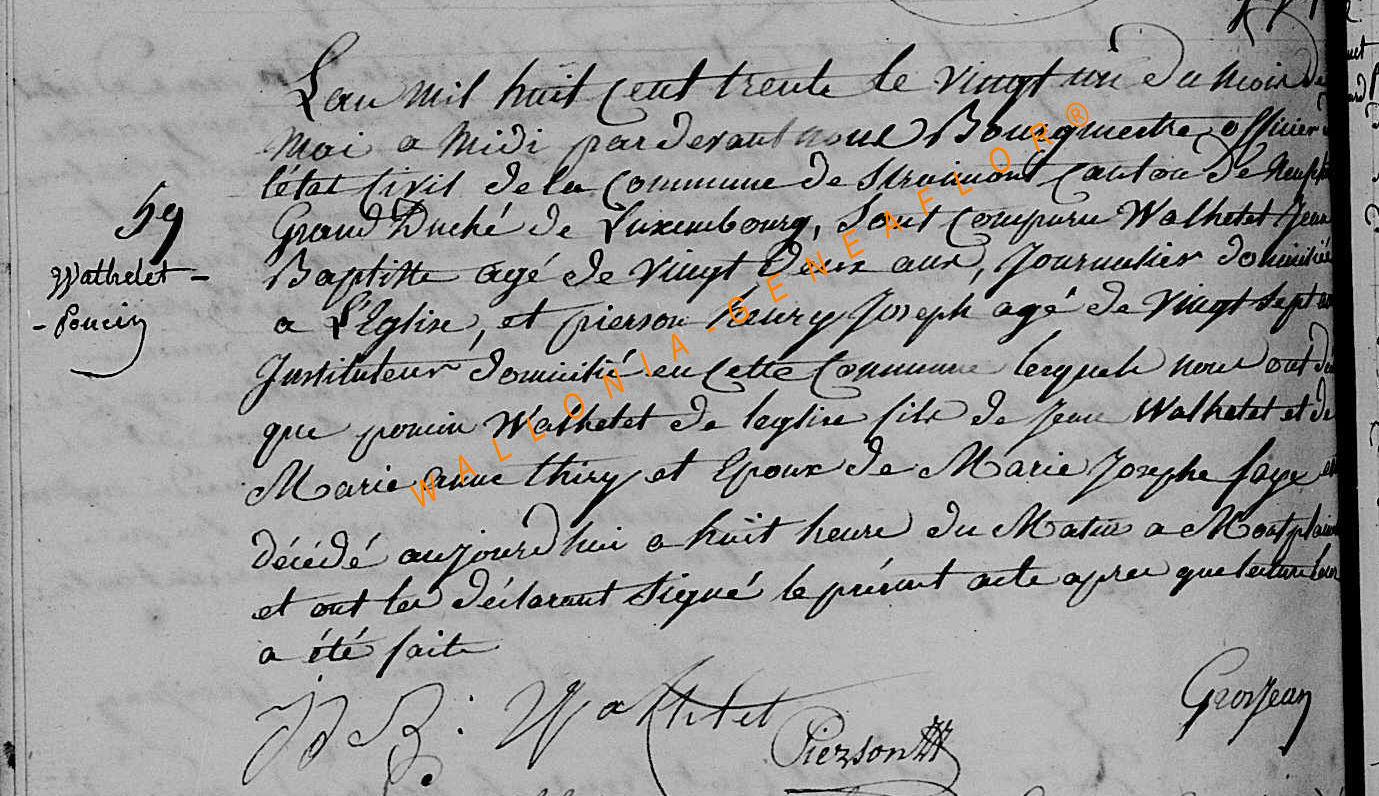 L'an mil huit cent trente le vingt un du mois de
mai a midi pardevant nous Bourgmestre officier
létat Civil de la Commune de Straimont Canton de Neufch
Grand Duché de Luxembourg, sont comparu Walhetet Jean
59
Baptiste agé de vingt deux ans, Journalier domicilié
Wathelet -
- Poncin
a L'Eglise, et pierson henry Joseph agé de vingt sept ans
Instituteur domicilié en cette Commune lesquels nous ont dit
que poncin Walhetet de leglise fils de Jean Walhetet et de
Marie anne thiry et Epoux de Marie Josephe faye
décédé aujourdhui a huit heure du Matin a Montplain
et ont les déclarant signé le présent acte apres que lecture leur
a été faite
J B: Walhtetet
Pierson
GrosJean
WALLONIA-GENEAFLOR®